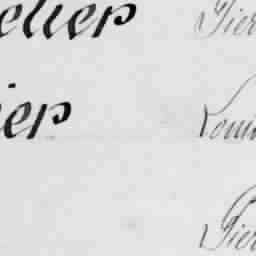 elier Pier
ier Loui
Pier